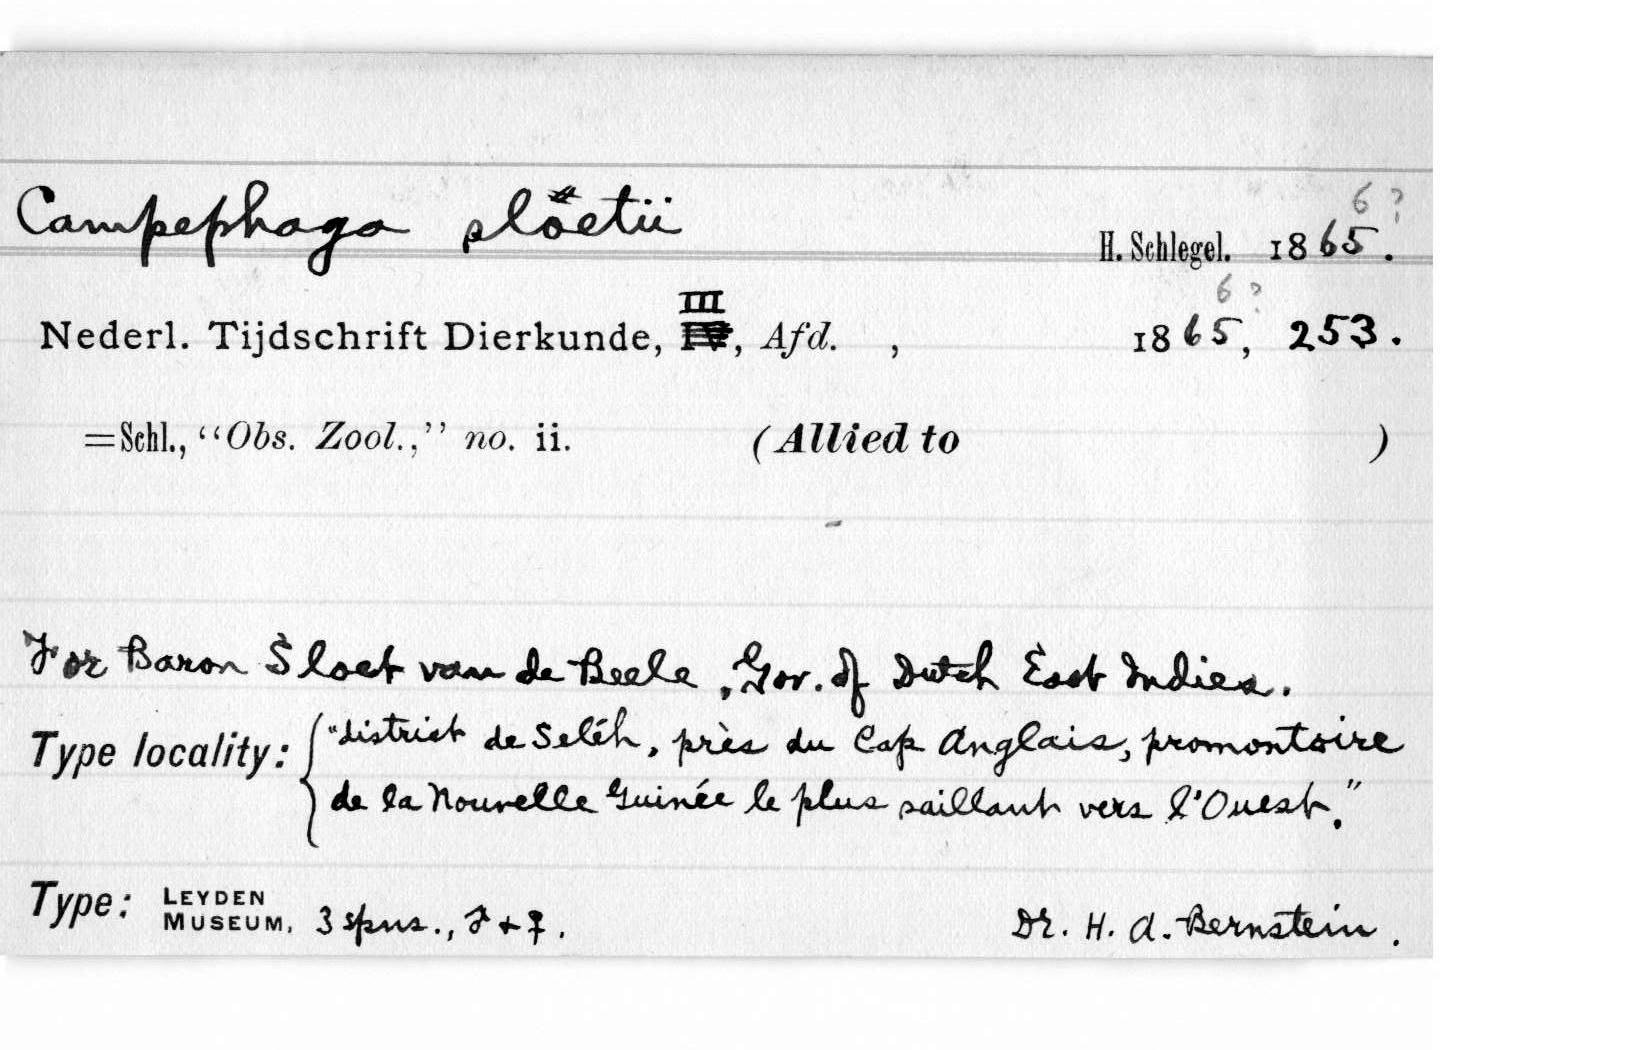 Campephaga slöetii
6?
H. Schlegel. 1865.
III
6?
Nederl. Tijdschrift Dierkunde, IV, Afd. , 1865, 253.
=Schl., “Obs. Zool.,” no. ii. (Allied to )
For Baron Sloet van de Beele, Gov. of Dutch East Indies.
Type locality: { "district de Seléh, près du Cap Anglais, promontoire
de la Nouvelle Guinée le plus saillant vers l'Ouest."
Type: LEYDEN MUSEUM, 3 spns., ♂ + ♀. Dr. H. A. Bernstein.